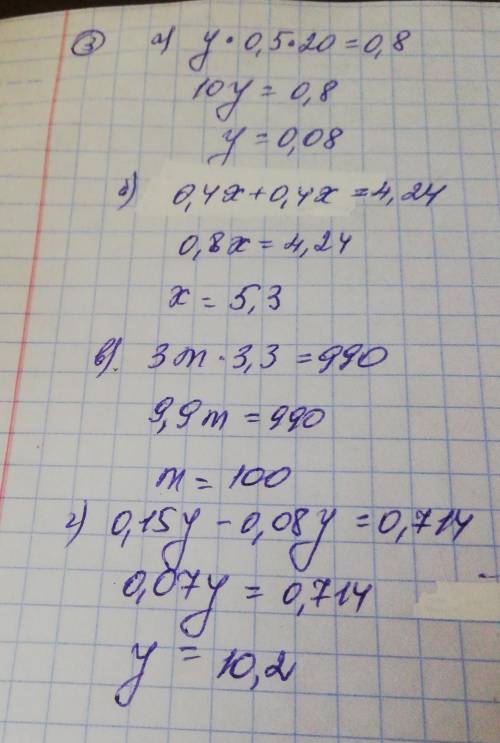 ③ а) y · 0,5 · 20 = 0,8
10y = 0,8
y = 0,08
б) 0,4x + 0,4x = 4,24
0,8x = 4,24
x = 5,3
в). 3m · 3,3 = 990
9,9m = 990
m = 100
г) 0,15y - 0,08y = 0,714
0,07y = 0,714
y = 10,2